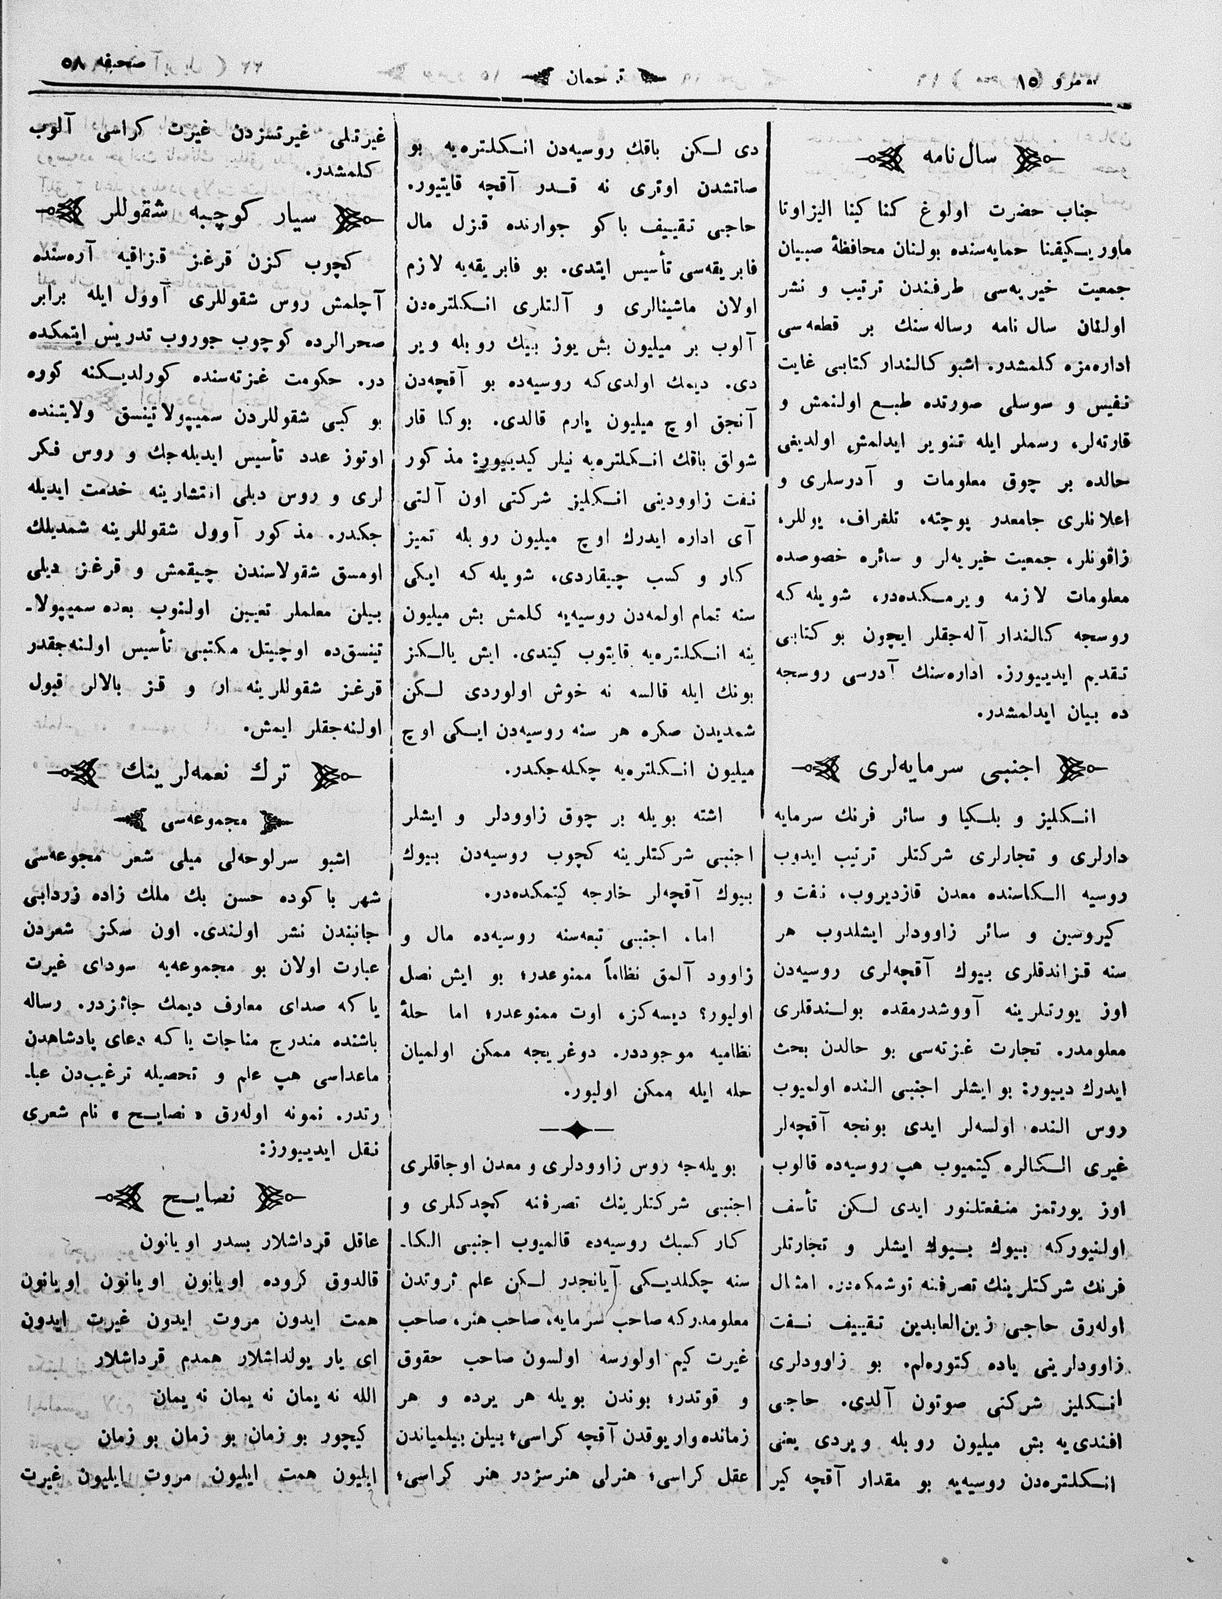 نومرو ١٥
ترجمان
صحيفه ٥٨
سال نامه
جناب حضرت اولوغ كناكينا اليزاوتا
ماوريكيفنا حمايه‌سنده بولنان محافظۀ صبيان
جمعيت خيريه‌سى طرفندن ترتيب و نشر
اولنان سال نامه رساله‌سنك بر قطعه‌سى
اداره‌مزه كلمشدر. اشبو كالندار كتابى غايت
نفيس و سوسلى صورتده طبع اولنمش و
قارته‌لر، رسملر ايله تنوير ايدلمش اولديغى
حالده بر چوق معلومات و آدرسلرى و
اعلانلرى جامعدر پوچته، تلغراف، يوللر،
زاقونلر، جمعيت خيريه‌لر و سائره خصوصده
معلومات لازمه ويرمكده‌در، شويله كه
روسجه كالندار آله‌جقلر ايچون بو كتابى
تقديم ايدييورز. اداره‌سنك آدرسى روسجه
ده بيان ايدلمشدر.
اجنبى سرمايه‌لرى
انكليز و بلكيا و سائر فرنك سرمايه
دارلرى و تجارلرى شركتلر ترتيب ايدوب
روسيه الكاسنده معدن قازديروب، نفت و
كيروسين و سائر زاوودلر ايشلدوب هر
سنه قزاندقلرى بيوك آقچه‌لرى روسيه‌دن
اوز يورتلرينه آووشدرمقده بولندقلرى
معلومدر. تجارت غزته‌سى بو حالدن بحث
ايدرك دييور: بو ايشلر اجنبى النده اولميوب
روس النده اولسه‌لر ايدى بونجه آقچه‌لر
غيرى الكالره كيتميوب هپ روسيه‌ده قالوب
اوز يورتمز منفعتلنور ايدى لكن تأسف
اولنيوركه بيوك بيوك ايشلر و تجارتلر
فرنك شركتلرينك تصرفنه توشمكده‌در. امثال
اوله‌رق حاجى زين‌العابدين تقييف نفت
زاوودلرينى ياده كتوره‌لم. بو زاوودلرى
انكليز شركتى صوتون آلدى. حاجى
افندى‌يه بش ميليون روبله ويردى يعنى
انكلتره‌دن روسيه‌يه بو مقدار آقچه كير
دى لكن باقك روسيه‌دن انكلتره‌يه بو
صاتشدن اوترى نه قدر آقچه قايتيور.
حاجى تقييف باكو جوارنده قزل مال
فابريقه‌سى تأسيس ايتدى. بو فابريقه‌يه لازم
اولان ماشينالرى و آلتلرى انكلتره‌دن
آلوب بر ميليون بش يوز بيك روبله وير
دى. ديمك اولدى‌كه روسيه‌ده بو آقچه‌دن
آنجق اوچ ميليون يارم قالدى. بوكا قار
شولق باقك انكلتره‌يه نيلر كيدييور: مذكور
نفت زاوودينى انكليز شركتى اون آلتى
آى اداره ايدرك اوچ ميليون روبله تميز
كار و كسب چيقاردى، شويله كه ايكى
سنه تمام اولمه‌دن روسيه‌يه كلمش بش ميليون
ينه انكلتره‌يه قايتوب كيتدى. ايش يالكز
بونك ايله قالسه نه خوش اولوردى لكن
شمديدن صكره هر سنه روسيه‌دن ايكى اوچ
ميليون انكلتره‌يه چكله‌جكدر.
اشته بويله بر چوق زاوودلر و ايشلر
اجنبى شركتلرينه كچوب روسيه‌دن بيوك
بيوك آقچه‌لر خارجه كيتمكده‌در.
اما، اجنبى تبعه‌سنه روسيه‌ده مال و
زاوود آلمق نظاماً ممنوعدر؛ بو ايش نصل
اوليور؟ ديسه‌كز، اوت ممنوعدر؛ اما حلۀ
نظاميه موجوددر. دوغريجه ممكن اولميان
حله ايله ممكن اوليور.
بويله‌جه روس زاوودلرى و معدن اوجاقلرى
اجنبى شركتلرينك تصرفنه كچدكلرى و
كار كسبك روسيه‌ده قالميوب اجنبى الكا-
سنه چكلديكى آيانجدر لكن علم ثروتدن
معلومدركه صاحب سرمايه، صاحب هنر، صاحب
غيرت كيم اولورسه اولسون صاحب حقوق
و قوتدر؛ بوندن بويله هر يرده و هر
زمانده وار يوقدن آقچه كراسى؛ بيلن بيلمياندن
عقل كراسى؛ هنرلى هنرسزدر هنر كراسى؛
غيرتلى غيرتسزدن غيرت كراسى آلوب
كلمشدر.
سيار كوچبه شقوللر
كچوب كزن قرغز قزاقيه آره‌سنده
آچلمش روس شقوللرى آوول ايله برابر
صحرالرده كوچوب جوروب تدريس ايتمكده
در. حكومت غزته‌سنده كورلديكنه كوره
بو كبى شقوللردن سميپولاتينسق ولايتنده
اوتوز عدد تأسيس ايديله‌جك و روس فكر
لرى و روس ديلى انتشارينه خدمت ايديله
جكدر. مذكور آوول شقوللرينه شمديلك
اومسق شقولاسندن چيقمش و قرغز ديلى
بيلن معلملر تعيين اولنوب بعده سميپولا-
تينسق‌ده اوچيتل مكتبى تأسيس اولنه‌جقدر
قرغز شقوللرينه ار و قز بالالر قبول
اولنه‌جقلر ايمش.
ترك نعمه‌لرينك
مجموعه‌سى
اشبو سرلوحه‌لى ميلى شعر مجوعه‌سى
شهر باكوده حسن بك ملك زاده زردابى
جانبندن نشر اولندى. اون سكز شعردن
عبارت اولان بو مجموعه‌يه سوداى غيرت
ياكه صداى معارف ديمك جائزدر. رساله
باشنده مندرج مناجات ياكه دعاى پادشاهدن
ماعداسى هپ علم و تحصيله ترغيب‌دن عبا-
رتدر. نمونه اوله‌رق «نصايح» نام شعرى
نقل ايدييورز:
نصايح
عاقل قرداشلار بسدر اويانون
قالدوق كروده اويانون اويانون اويانون
همت ايدون مروت ايدون غيرت ايدون
اى يار يولداشلار همدم قرداشلار
الله نه يمان نه يمان نه يمان
كيچور بو زمان بو زمان بو زمان
ايليون همت ايليون مروت ايليون غيرت